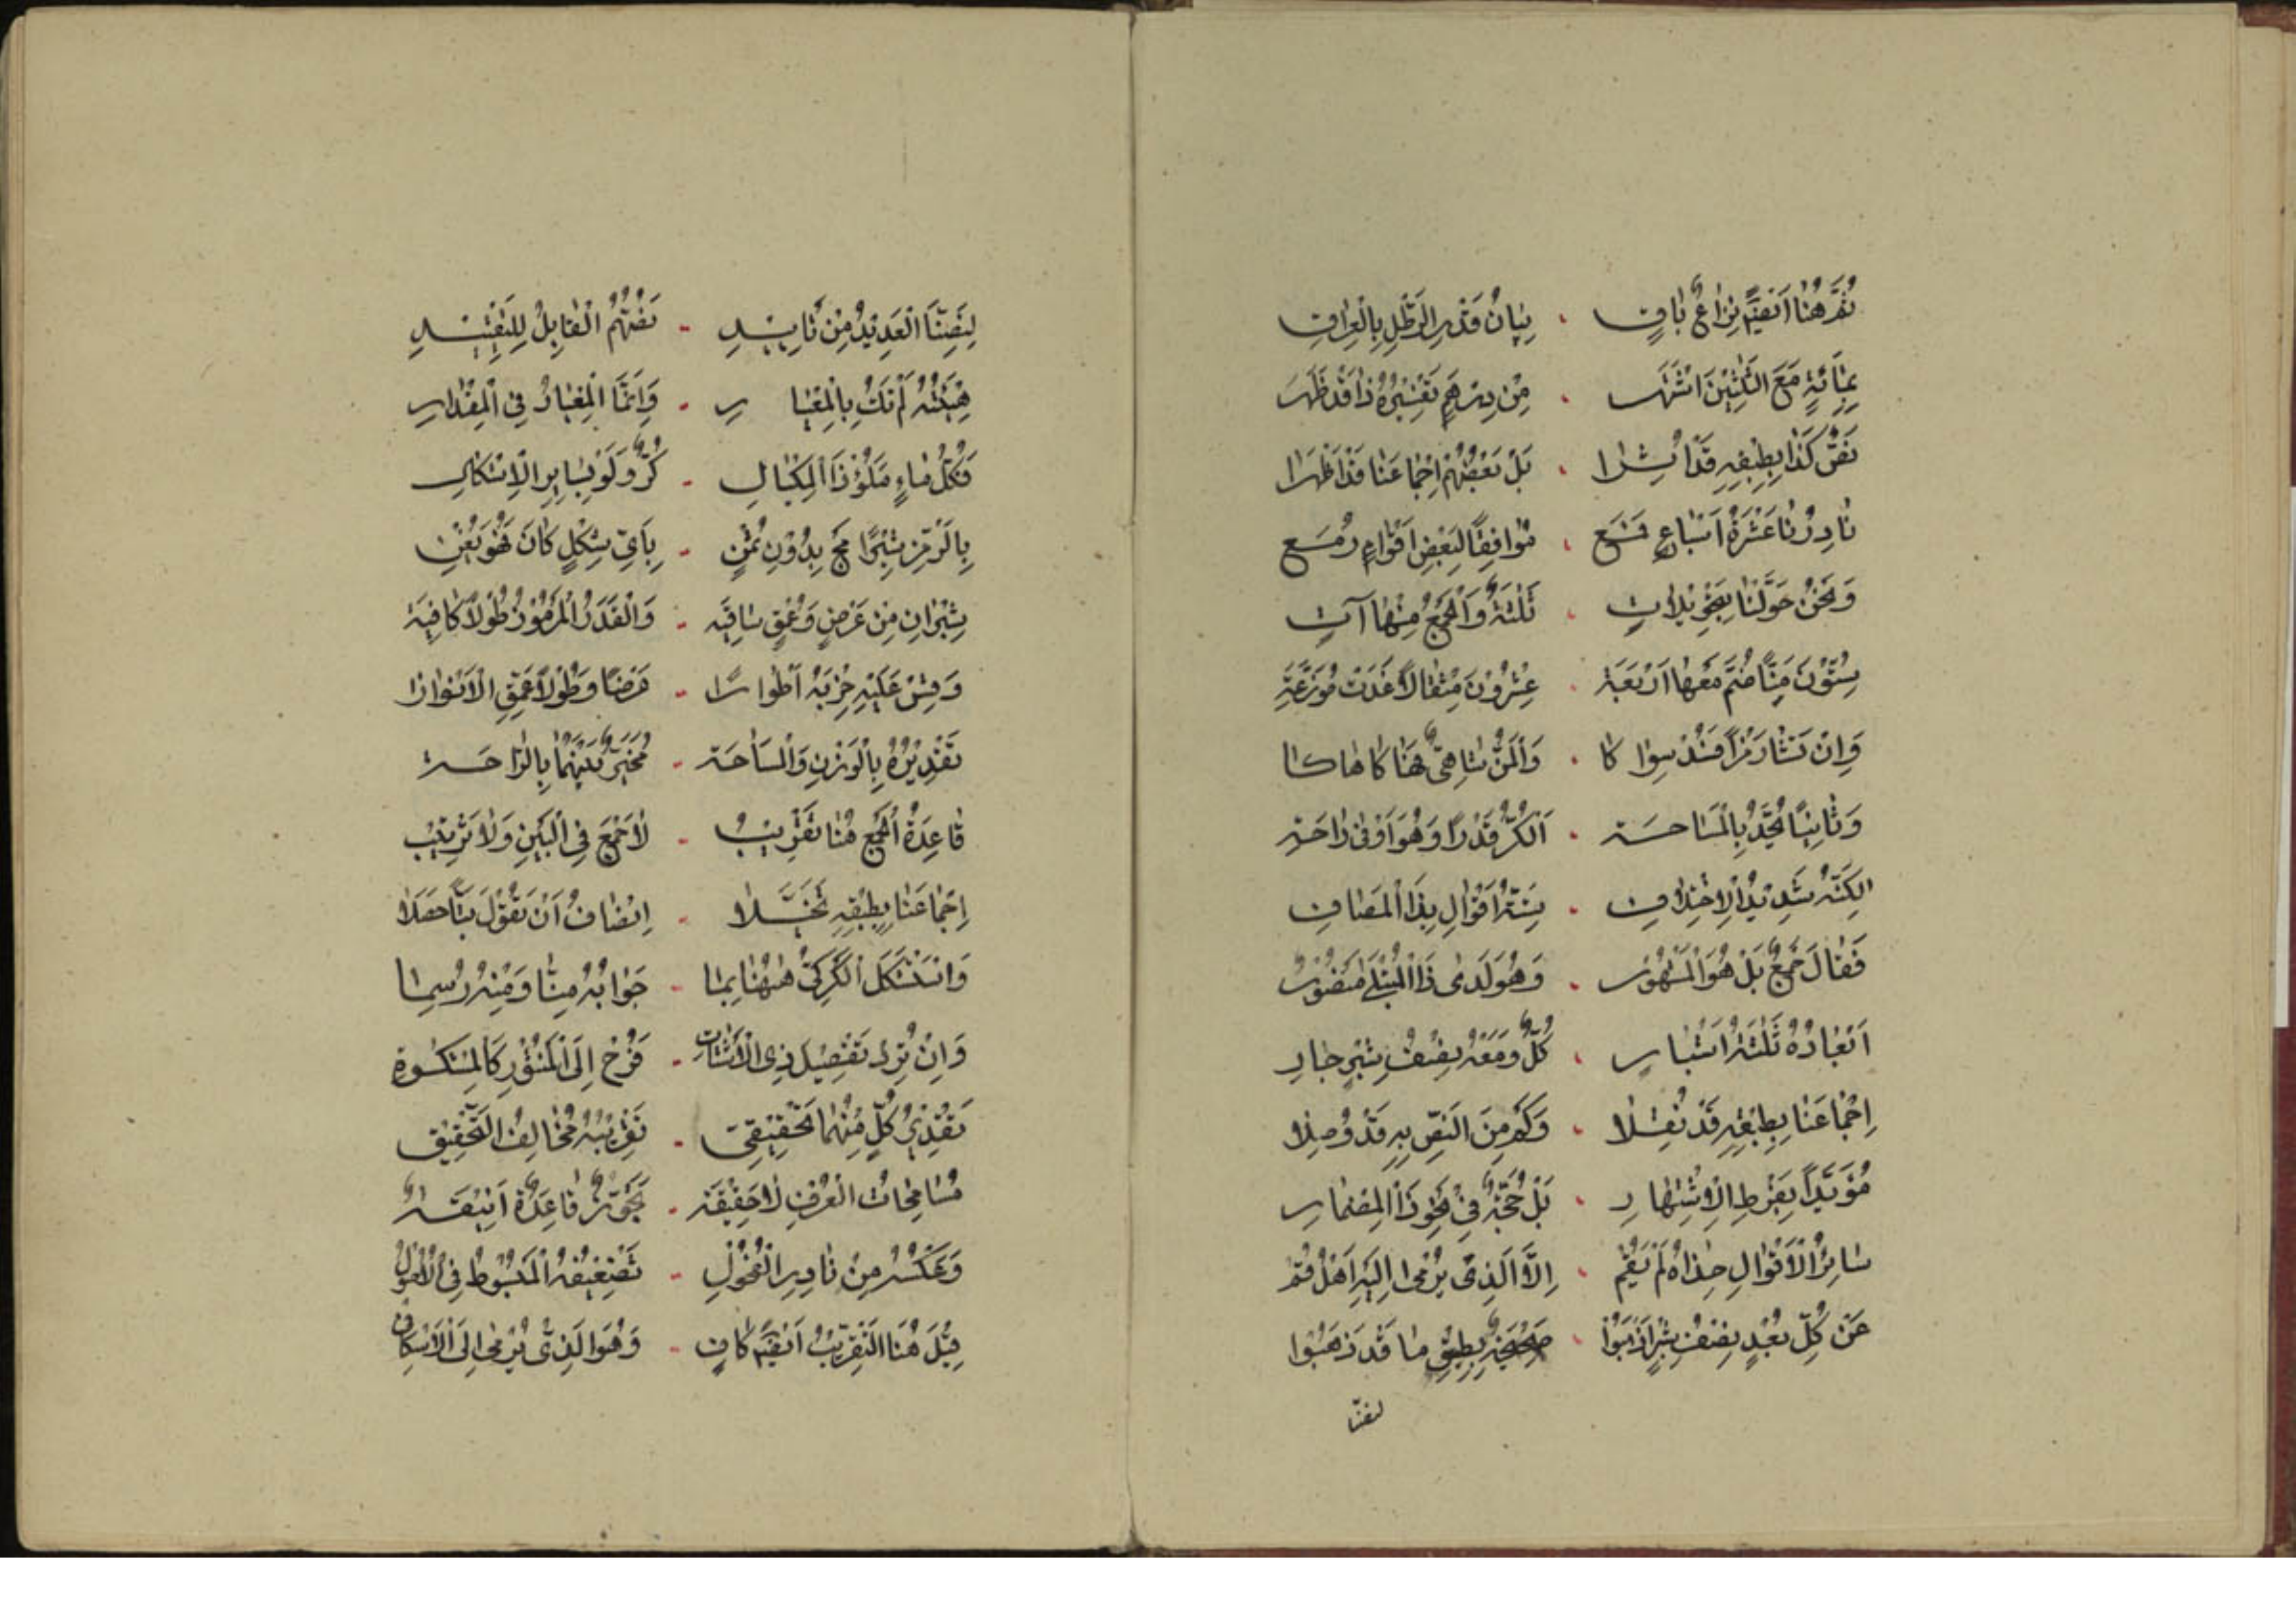 ثُمَّ هُنَا اَيْضًا نِزَاعٌ بَاقٍ . بَيَانُ قَدْرِ الرَّطْلِ بِالْعِرَاقِ
بِمِائَةٍ مَعَ الثَّلٰثِيْنَ اشْتَهَر . مِنْ دِرْهَمٍ تَفْسِيْرُهُ ذَا قَدْ ظَهَر
نَصٌّ كَذَا بِطِبْقِهِ قَدْ . بَلْ بَعْضُهُمْ اِجْمَاعَنَا قَدْ اَظْهَرَا
نَادِرُنَا عَشَرَةُ اَتْبَاعٍ . مُوَافِقًا لِبَعْضِ اَقْوَاءٍ
وَنَحْنُ حَوَّلْنَا . ثَلٰثَةٌ وَالْجَمْعُ مِنْهَا آتٍ
سِتُّوْنَ مَنًّا ضُمَّ مَعَهَا اَرْبَعَة . عِشْرُوْنَ مِثْقَالًا غَدَتْ مُوَزَّعَة
وَاِنْ تَشَأْ رَمْزًا . وَالْمَنُّ شَاهِيٌّ هُنَا كَمَا هَاكَا
وَثَانِيًا يُحَدُّ بِالْمَسَاحَة . اَلْكُرُّ قَدْرًا وَهُوَ اَوْفٰى رَاحَة
لٰكِنَّهُ شَدِيْدُ الْاِخْتِلَافِ . سِتَّةُ اَقْوَالٍ بِذَا الْمَصَافِ
فَقَالَ جَمْعٌ بَلْ هُوَ الْمَشْهُوْرُ . وَهُوَ لَدٰى ذَا الْمُبْتَلٰى مَنْصُوْرُ
اَبْعَادُهُ ثَلٰثَةُ اَشْبَارِ . كُلٌّ وَمَعَهُ نِصْفُ شِبْرٍ جَارِ
اِجْمَاعُنَا بِطِبْقِهِ قَدْ نُقِلَا . وَكَمْ مِنَ النَّصِّ بِهِ قَدْ وُصِلَا
مُؤَيَّدًا بِفَرْطِ الْاِشْتِهَارِ . بَلْ حُجَّةٌ فِيْ نَحْوِ ذَا الْمِضْمَارِ
سَائِرُ الْاَقْوَالِ حِذَاهُ لَمْ يَقُمْ . اِلَّا الَّذِيْ يُرْمٰى اِلَيْهِ اَهْلُ قُمْ
عَنْ كُلِّ بُعْدٍ نِصْفُ شِبْرٍ . صَحِيْحَةٌ بِطِبْقِ مَا قَدْ ذَهَبُوْا
لِنَصِّنَا الْعَدِيْدُ مِنْ تَاْيِيْدِ - نَصُّهُمُ الْقَابِلُ لِلتَّقْيِيْدِ
هَيْئَتُهُ لَمْ تَكُ بِالْمِعْيَارِ - وَاِنَّمَا الْمِعْيَارُ فِي الْمِقْدَارِ
فَكُلُّ مَاءٍ مَلَؤُ ذَا الْمِكْيَالِ - كُرٌّ وَلَوْ بِسَايِرِ الْاَشْكَالِ
بِالرَّمْزِ شِبْرًا مج بِدُوْنِ ثُمْنٍ - بِاَيِّ شَكْلٍ كَانَ فَهُوَ يُغْنِيْ
شِبْرَانِ مِنْ عَرْضٍ وَعُمْقٍ - وَالْقَدَرُ الْمَرْمُوْزُ طُوْلًا كَافِيَة
وَقِسْ عَلَيْهِ حِزْبَهُ اَطْوَارًا - عَرْضًا وَطُوْلًا عَمِّقِ الْاَغْوَارَا
تَقْدِيْرُهُ بِالْوَزْنِ وَالْمَسَاحَة - مُخَيَّرٌ بَيْنَهُمَا بِالرَّاحَة
قَاعِدَةُ الْجَمْعِ هُنَا تَقْرِيْبُ - لَا جَمْعَ فِي الْبَيْنِ وَلَا تَرْتِيْبُ
اِجْمَاعَنَا بِطِبْقِهِ - اِنْصَافُ اَنْ تَقُوْلَ بَتًّا حَصَلَا
وَاسْتَشْكَلَ الْكَرَكِيُّ هٰهُنَا بِمَا - جَوَابُهُ مِنَّا وَمِنْهُ رُسِمَا
وَاِنْ تُرِدْ تَفْصِيْلَ ذِي - فَرُحْ اِلَى الْمَنْثُوْرِ كَالْمِشْكٰوةِ
تَقْدِيْرُ كُلٍّ مِنْهُمَا تَحْقِيْقِيْ - تَقْرِيْبُهُ مُخَالِفُ التَّحْقِيْقِ
مُسَامَحَاتُ الْعُرْفِ لَا حَقِيْقَة - تَجَوُّزٌ قَاعِدَةٌ اَنِيْقَة
وَعَكْسُهُ مِنْ نَادِرِ الْفُحُوْلِ - تَضْعِيْفُهُ الْمَبْسُوْطُ فِي الْاُصُوْلِ
قِيْلَ هُنَا التَّقْرِيْبُ اَيْضًا كَافٍ - وَهُوَ الَّذِيْ يُرْمٰى اِلَى الْاِسْكَافِ